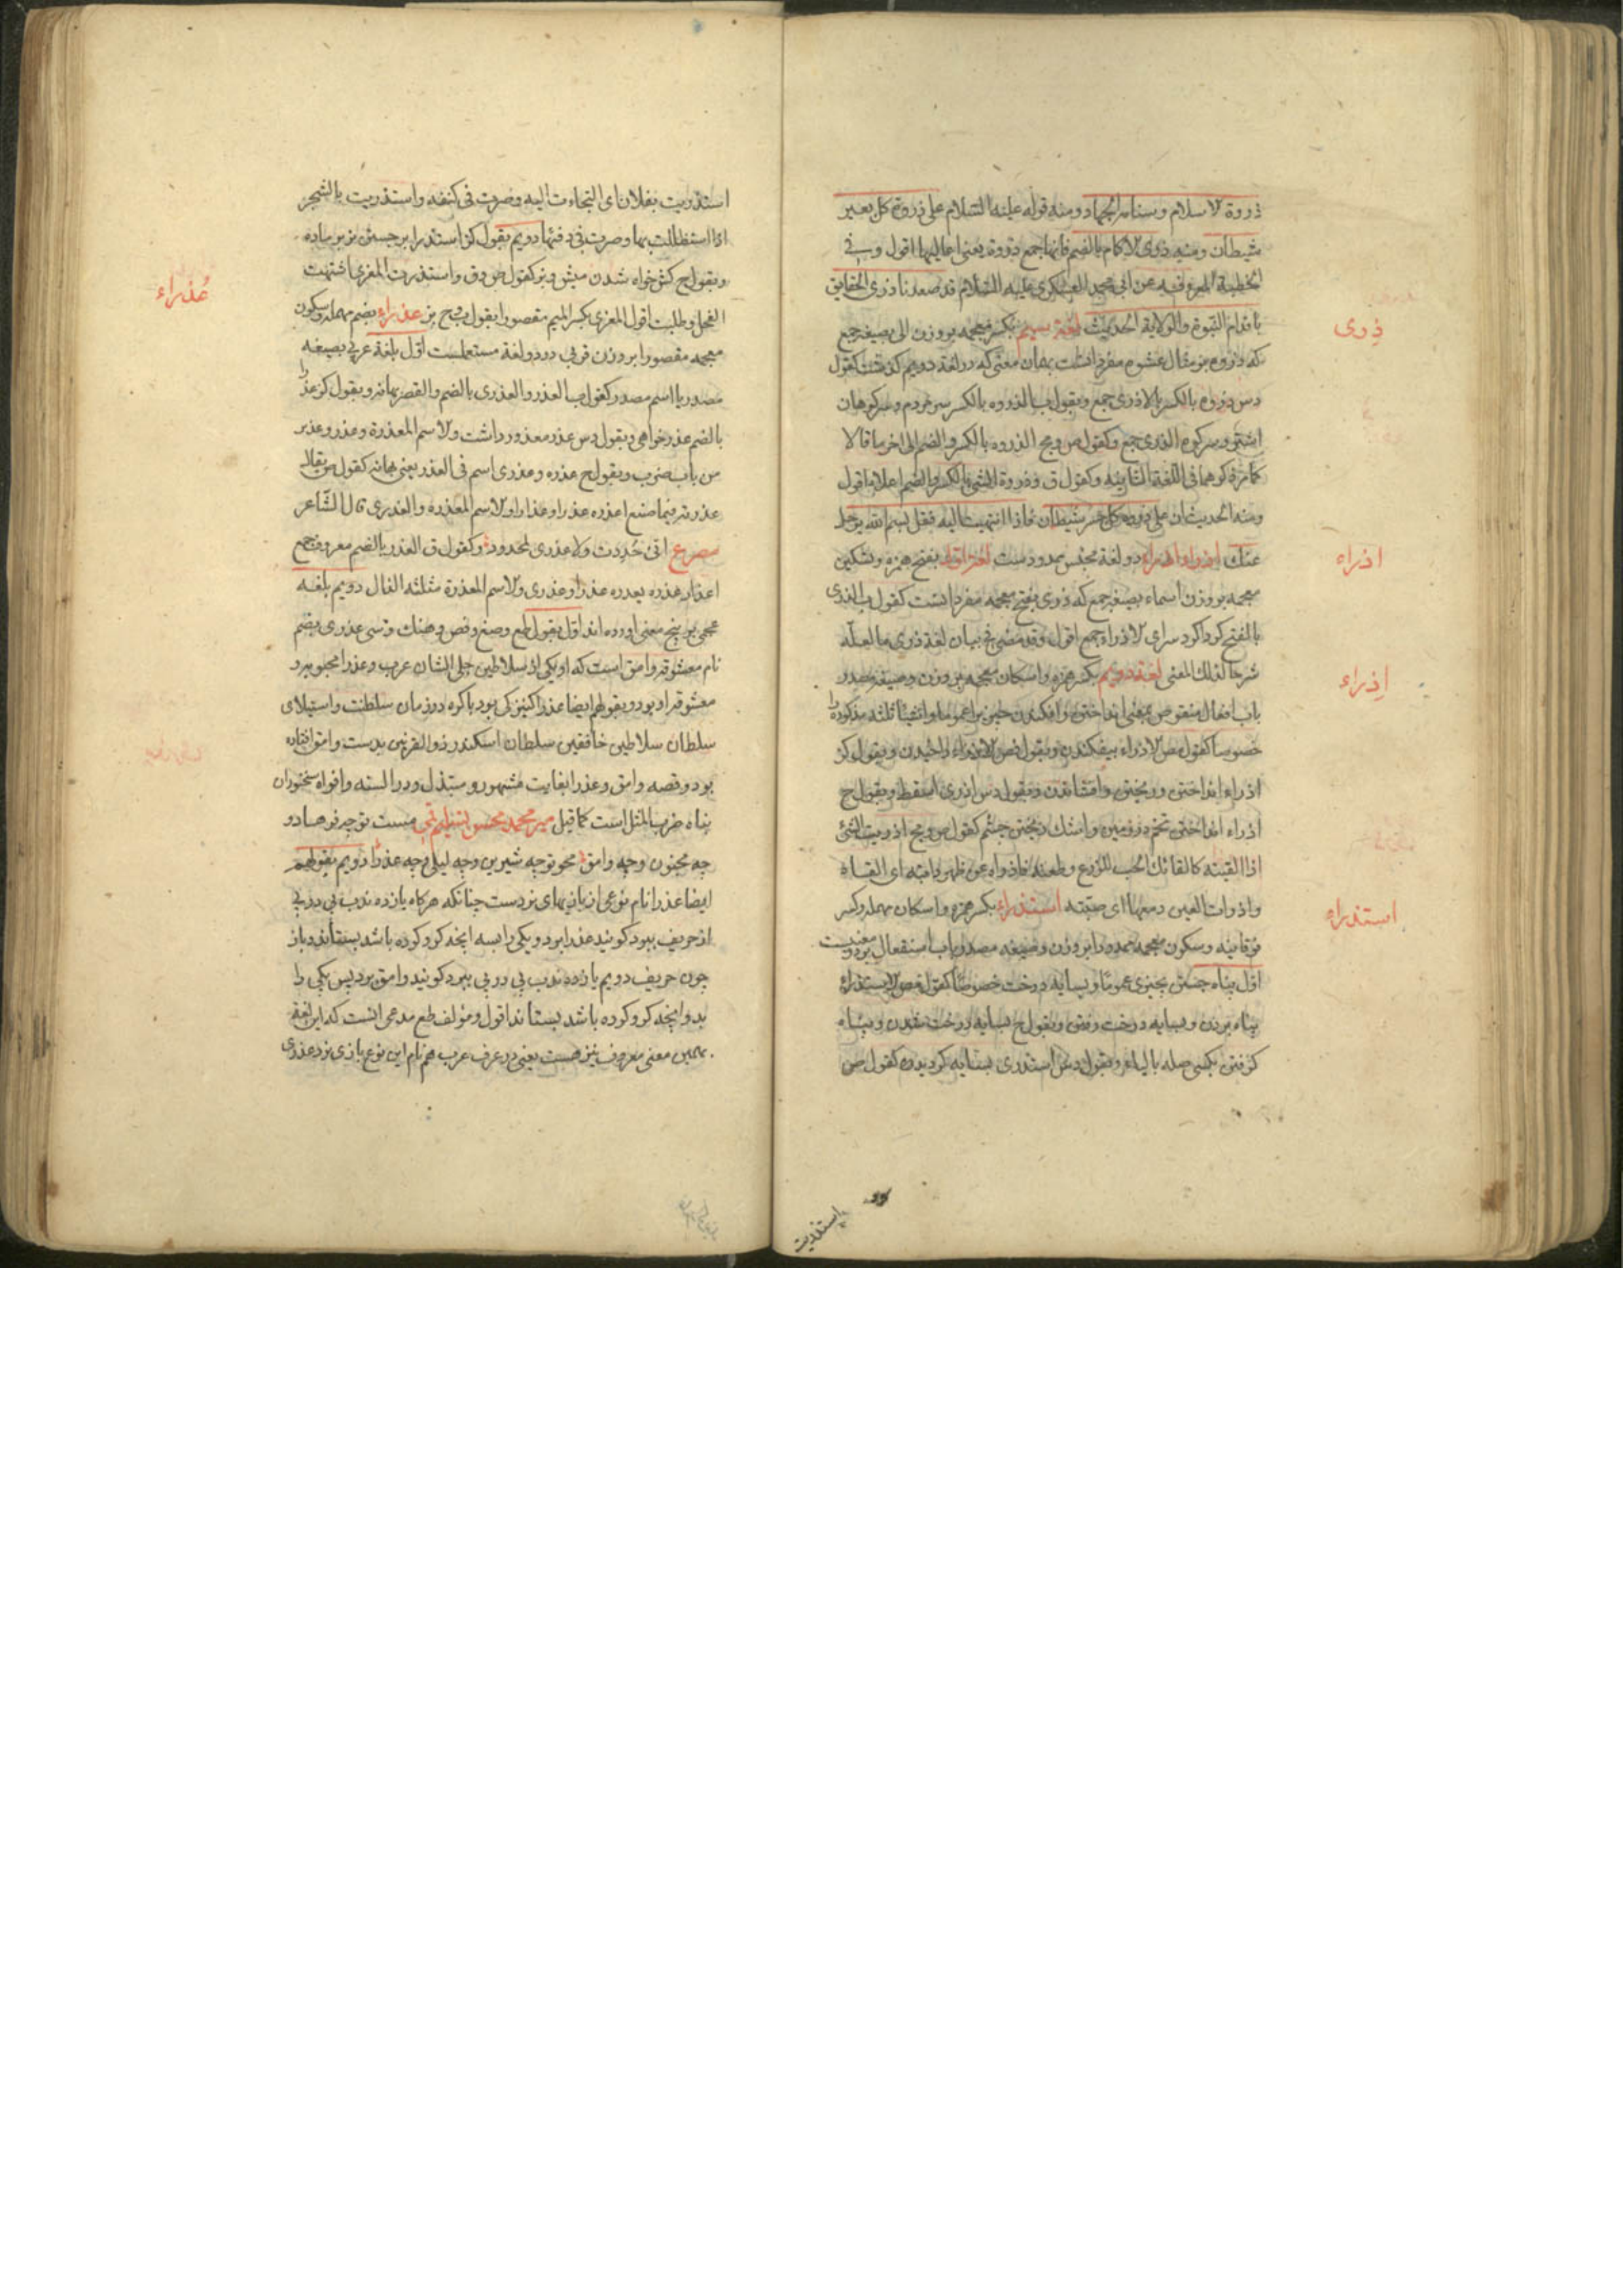 ذروة الاسلام وسنامه الجهاد ومنه قوله علیه السلام علی ذروة کل بعیر
شیطان ومنه ذری الاکام بالضم فانها جمع ذروة یعنی اعالیها اقول وب فی
الخطبة المعروفه عن ابی محمد العسکری علیه السلام قد صعدنا ذری الحقایق
باقدام النبوة والولایة الحدیث لغة سیم بکسر معجمه بر وزن الی بصیغه جمع
ذِری
که ذروه بر مثال عشوه مفرد انست بهمان معنی که در لغة دویم کذشت کقول
دس ذروه بالکسر بالا ذری جمع وبقول ب الذروه بالکسر سر مردم وسر کوهان
اشتر وسر کوه الذری جمع وکقول ص ومج الذروه بالکسر والضم الی اخر ما قالا
کما مر ذکرهما فی اللغة الثانیه وکقول ق وذروة الشی بالکسر والضم اعلاه اقول
ومنه الحدیث ان علی ذروة کل جسر شیطان فاذا انتهیت الیه فقل بسم الله یرحل
عنک اذراء واذراء دو لغة مجنس ممدودست لغة اول بفتح همزه وتسکین
اذراء
معجمه بر وزن اسماء بصیغه جمع که ذری بفتح معجمه مفرد انست کقول ب الذری
بالفتح کرداکرد سرای الاذراء جمع اقول وقد مضی فی بیان لغة ذری ما لعله
شرحا لذلک المعنی لغة دویم بکسر همزه واسکان معجمه بر وزن وصیغه مصدر
اِذراء
باب افعال منقوص بمعنی انداختن وافکندن چیز برا عموما واشیا ثلثه مذکوره را
خصوصا کقول مص الاذراء بیفکندن وبقول فص الاذراء واخیدن وبقول کز
اذراء انداختن وریختن وافشاندن وبقول دس اذری اسقط وبقول ح
اذراء انداختن تخم در زمین واشک ریختن چشم کقول ص ومج اذریت الشئ
اذا القیته کالقائک الحب للزرع وطعنه فاذراه عن ظهر دابته ای القاه
واذرات العین دمعها ای صبته استذراء بکسر همزه واسکان مهمله وکسر
استذراء
فوقانیه وسکون معجمه ممدودا بر وزن وصیغه مصدر باب استفعال بر دو معنیست
اول پناه جستن بچیزی عموما وبسایه درخت خصوصا کقول فص الاستذراء
پناه بردن وبسایه درخت رفتن وبقول ح بسایه درخت شدن وپناه
کرفتن بکسی صله بالباء وبقول دس استذری بسایه کردیدن کقول ص
استذریت
استذریت بفلان ای التجاءت الیه وصرت فی کنفه واستذریت بالشجر
اذا استظللت بها وصرت فی دفئها دویم بقول کز استذرا بر جستن نر بر ماده
وبقول ح کش خواه شدن میش وبز کقول ص وق واستذرت المعزی اشتهت
الفحل وطلبت اقول المعزی بکسر المیم مقصورا بقول ب ح بز عذراء بضم مهمله وسکون
عُذراء
معجمه مقصورا بر وزن قربی در دو لغة مستعملست اول بلغة عربی بصیغه
مصدر یا اسم مصدر کقول ب العذر والعذری بالضم والقصر بهانه وبقول کز عذرا
بالضم عذر خواهی وبقول دس عذر معذور داشت والاسم المعذرة وعذر وعذیر
من باب ضرب وبقول ح عذره وعذری اسم فی العذر یعنی بهانه کقول ص یقال
عذرته فیما صنع اعذره عذرا وعذارا والاسم المعذره والعذری قال الشاعر
مصرع انی حُدِدت ولا عذری لمحدود وکقول ق العذر بالضم معروف جمع
اعذار عذره یعذره عذرا وعذری والاسم المعذرة مثلثه الذال دویم بلغه
عجمی بر پنج معنی اورده اند اول بقول طع وصغ وفص وهنک وشی عذری بضم
نام معشوقه وامق است که او یکی از سلاطین جلی الشان عرب وعذرا محبوبه و
معشوقه او بود وبقولهم ایضا عذرا کنیزکی بود باکره در زمان سلطنت واستیلای
سلطان سلاطین خافقین سلطان اسکندر ذو القرنین بدست وامق افتاده
بود وقصه وامق وعذرا بغایت مشهور ومبتذل ودر السنه وافواه سخنوران
پناه ضرب المثل است کما قیل میر محمد محسن مست تو چه فرهاد و
چه مجنون وچه وامق محو تو چه شیرین وچه لیلی وچه عذرا دویم بقولهم
ایضا عذرا نام نوعی از بازیهای نردست چنانکه هر کاه یازده ندب پی در پی
از حریف ببرد کویند عذرا برد ویکی را بسه انچه کرو کرده باشد بستاند وباز
چون حریف دویم یازده ندب پی در پی ببرد کویند وامق برد پس یکی را
بدو انچه کرو کرده باشد بستاند اقول ومؤلف طع مدعی انست که این لغة
بهمین معنی معروف نیز هست یعنی در عرف عرب هم نام این نوع بازی نرد عذری